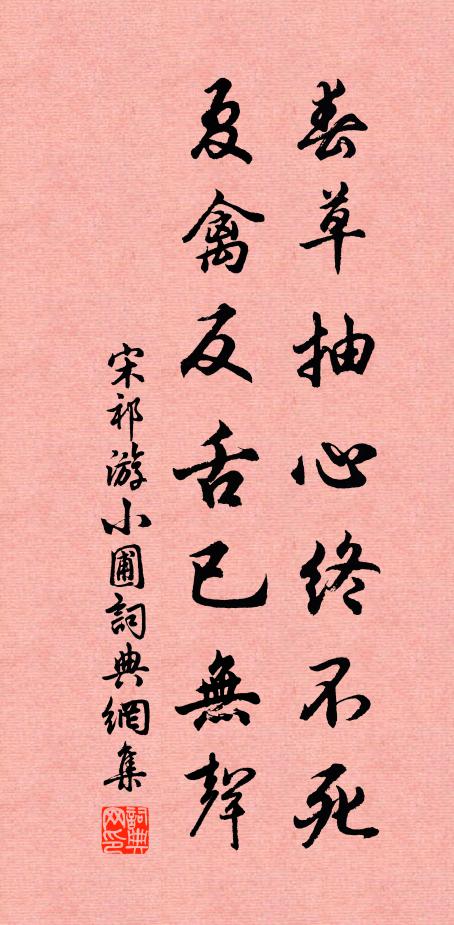 春草抽心终不死
夏禽反舌已無聲
宋祁游小圃詞典網集
詞典网印